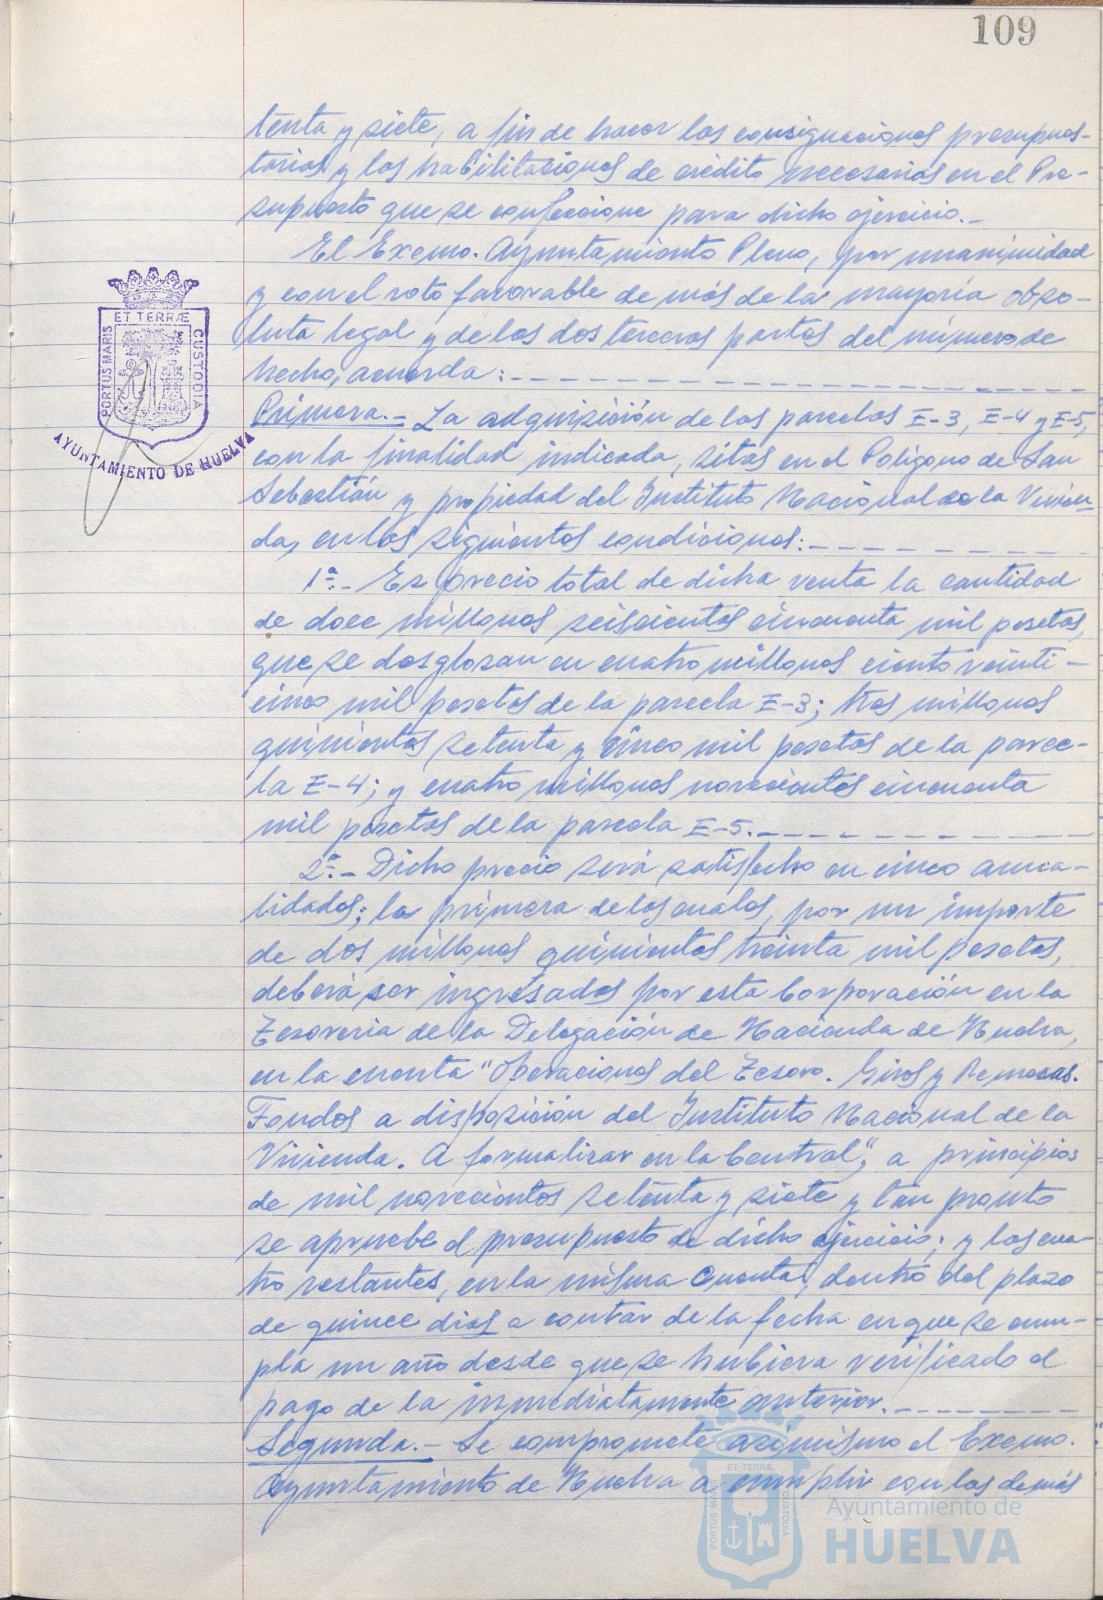 109
tenta y siete, a fin de hacer las consignaciones presupues-
tarias y las habilitaciones de crédito necesarias en el Pre-
supuesto que se confeccione para dicho ejercicio.-
El Excmo. Ayuntamiento Pleno, por unanimidad
y con el voto favorable de más de la mayoría abso-
luta legal y de los dos terceras partes del número de
hecho, acuerda:
Primera.- La adquisición de las parcelas E-3, E-4 y E-5,
con la finalidad indicada, sitas en el Polígono de San
Sebastián y propiedad del Instituto Nacional de la Vivien-
da, en las siguientes condiciones:
1ª.- Es precio total de dicha venta la cantidad
de doce millones seiscientas cincuenta mil pesetas,
que se desglosan en cuatro millones ciento veinti-
cinco mil pesetas de la parcela E-3; tres millones
quinientas setenta y cinco mil pesetas de la parce-
la E-4; y cuatro millones novecientas cincuenta
mil pesetas de la parcela E-5.
2ª.- Dicho precio será satisfecho en cinco anua-
lidades; la primera de las cuales, por un importe
de dos millones quinientas treinta mil pesetas,
deberá ser ingresadas por esta Corporación en la
Tesorería de la Delegación de Hacienda de Huelva,
en la cuenta "Operaciones del Tesoro. Giros y Remesas.
Fondos a disposición del Instituto Nacional de la
Vivienda. A formalizar en la Central", a principios
de mil novecientos setenta y siete y tan pronto
se apruebe el presupuesto de dicho ejercicio; y las cua-
tro restantes, en la misma Cuenta, dentro del plazo
de quince días a contar de la fecha en que se cum-
pla un año desde que se hubiera verificado el
pago de la inmediatamente anterior.
Segunda.- Se compromete asimismo el Excmo.
Ayuntamiento de Huelva a cumplir con las demás
PORTUS MARIS
ET TERRÆ
CUSTODIA
AYUNTAMIENTO DE HUELVA
PORTUS MARIS
ET TERRÆ
CUSTODIA
Ayuntamiento de
HUELVA